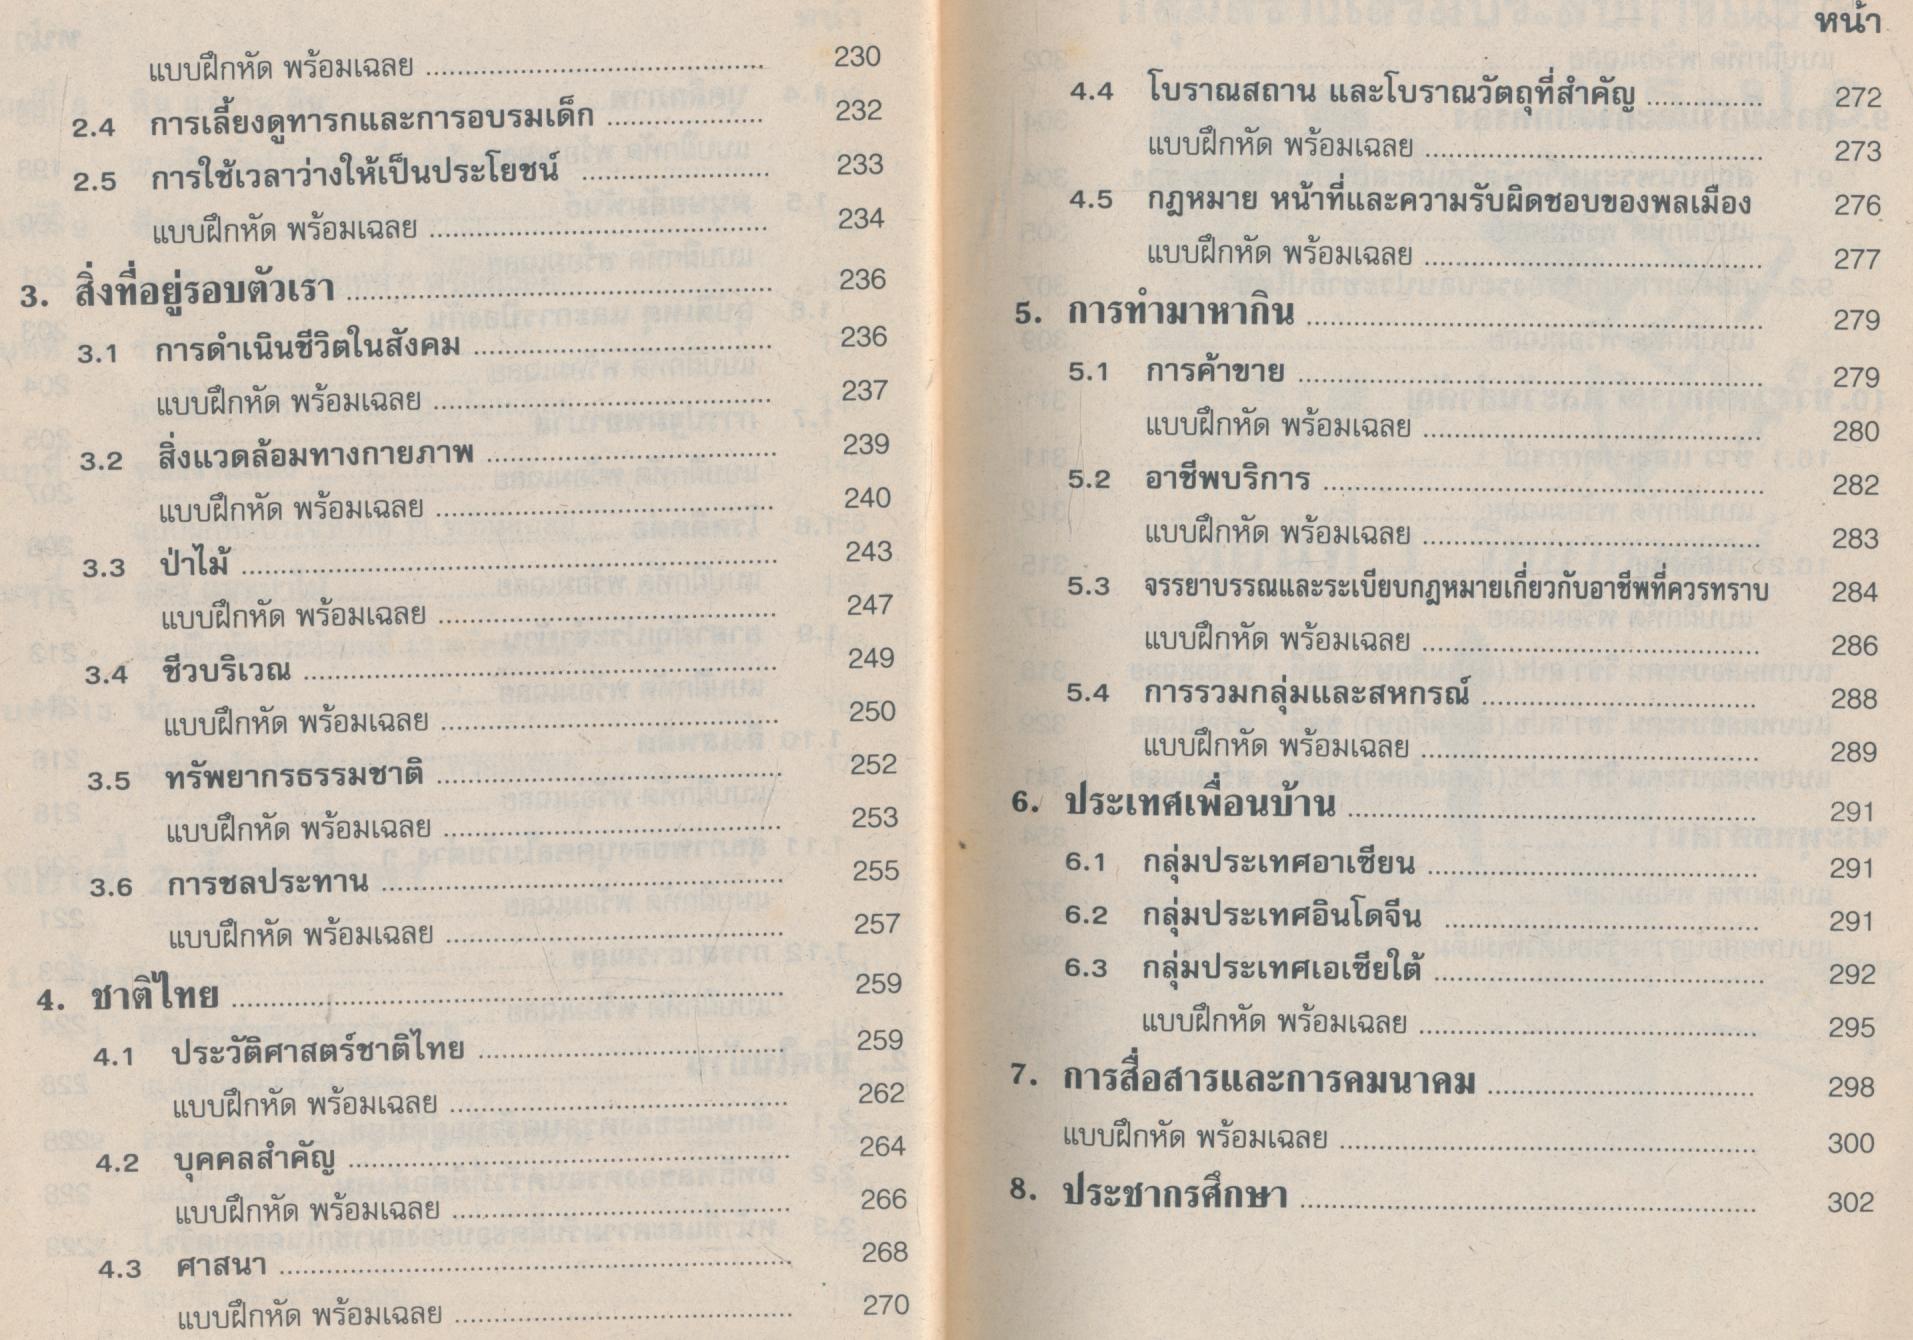 แบบฝึกหัด พร้อมเฉลย ........................................ 230
2.4 การเลี้ยงดูทารกและการอบรมเด็ก .................... 232
2.5 การใช้เวลาว่างให้เป็นประโยชน์ ........................ 233
แบบฝึกหัด พร้อมเฉลย ........................................ 234
3. สิ่งที่อยู่รอบตัวเรา .................................................. 236
3.1 การดำเนินชีวิตในสังคม .................................... 236
แบบฝึกหัด พร้อมเฉลย ........................................ 237
3.2 สิ่งแวดล้อมทางกายภาพ ................................... 239
แบบฝึกหัด พร้อมเฉลย ........................................ 240
3.3 ป่าไม้ ................................................................ 243
แบบฝึกหัด พร้อมเฉลย ........................................ 247
3.4 ชีวบริเวณ ......................................................... 249
แบบฝึกหัด พร้อมเฉลย ........................................ 250
3.5 ทรัพยากรธรรมชาติ ......................................... 252
แบบฝึกหัด พร้อมเฉลย ........................................ 253
3.6 การชลประทาน ................................................ 255
แบบฝึกหัด พร้อมเฉลย ........................................ 257
4. ชาติไทย ................................................................. 259
4.1 ประวัติศาสตร์ชาติไทย .................................... 259
แบบฝึกหัด พร้อมเฉลย ........................................ 262
4.2 บุคคลสำคัญ .................................................... 264
แบบฝึกหัด พร้อมเฉลย ........................................ 266
4.3 ศาสนา ............................................................. 268
แบบฝึกหัด พร้อมเฉลย ........................................ 270
หน้า
4.4 โบราณสถาน และโบราณวัตถุที่สำคัญ .............. 272
แบบฝึกหัด พร้อมเฉลย ........................................ 273
4.5 กฎหมาย หน้าที่และความรับผิดชอบของพลเมือง 276
แบบฝึกหัด พร้อมเฉลย ........................................ 277
5. การทำมาหากิน ...................................................... 279
5.1 การค้าขาย ....................................................... 279
แบบฝึกหัด พร้อมเฉลย ........................................ 280
5.2 อาชีพบริการ .................................................... 282
แบบฝึกหัด พร้อมเฉลย ........................................ 283
5.3 จรรยาบรรณและระเบียบกฎหมายเกี่ยวกับอาชีพที่ควรทราบ 284
แบบฝึกหัด พร้อมเฉลย ........................................ 286
5.4 การรวมกลุ่มและสหกรณ์ .................................. 288
แบบฝึกหัด พร้อมเฉลย ........................................ 289
6. ประเทศเพื่อนบ้าน ................................................. 291
6.1 กลุ่มประเทศอาเซียน ........................................ 291
6.2 กลุ่มประเทศอินโดจีน ...................................... 291
6.3 กลุ่มประเทศเอเซียใต้ ....................................... 292
แบบฝึกหัด พร้อมเฉลย ........................................ 295
7. การสื่อสารและการคมนาคม ................................ 298
แบบฝึกหัด พร้อมเฉลย ................................................ 300
8. ประชากรศึกษา ...................................................... 302